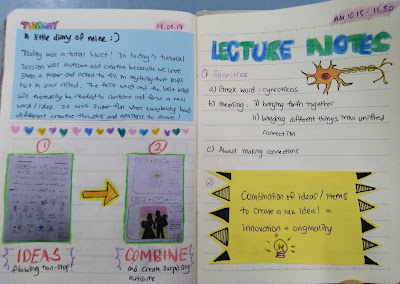 TUESDAY
08.05.18
A little diary of mine :)
Today was a total blast! In today's tutorial
session was awesome and creative because we were
given a paper and asked to fill in anything that pops
out in your mind. The first ways and the last ways
will eventually be needed to combine and form a new
word / idea. It was super fun when everybody had
different creative thoughts and opinions to share!
①
②
IDEAS
flowing non-stop!
COMBINE
and create surprising
outcome
AM 10.15 - 11.50
LECTURE NOTES
① Synectics
a) Greek word : synecticos
b) meaning : i) bringing forth together
ii) bringing different things into unified
connection
c) About making connections
②
Combination of ideas / items
to create a new idea! =
innovation + originality